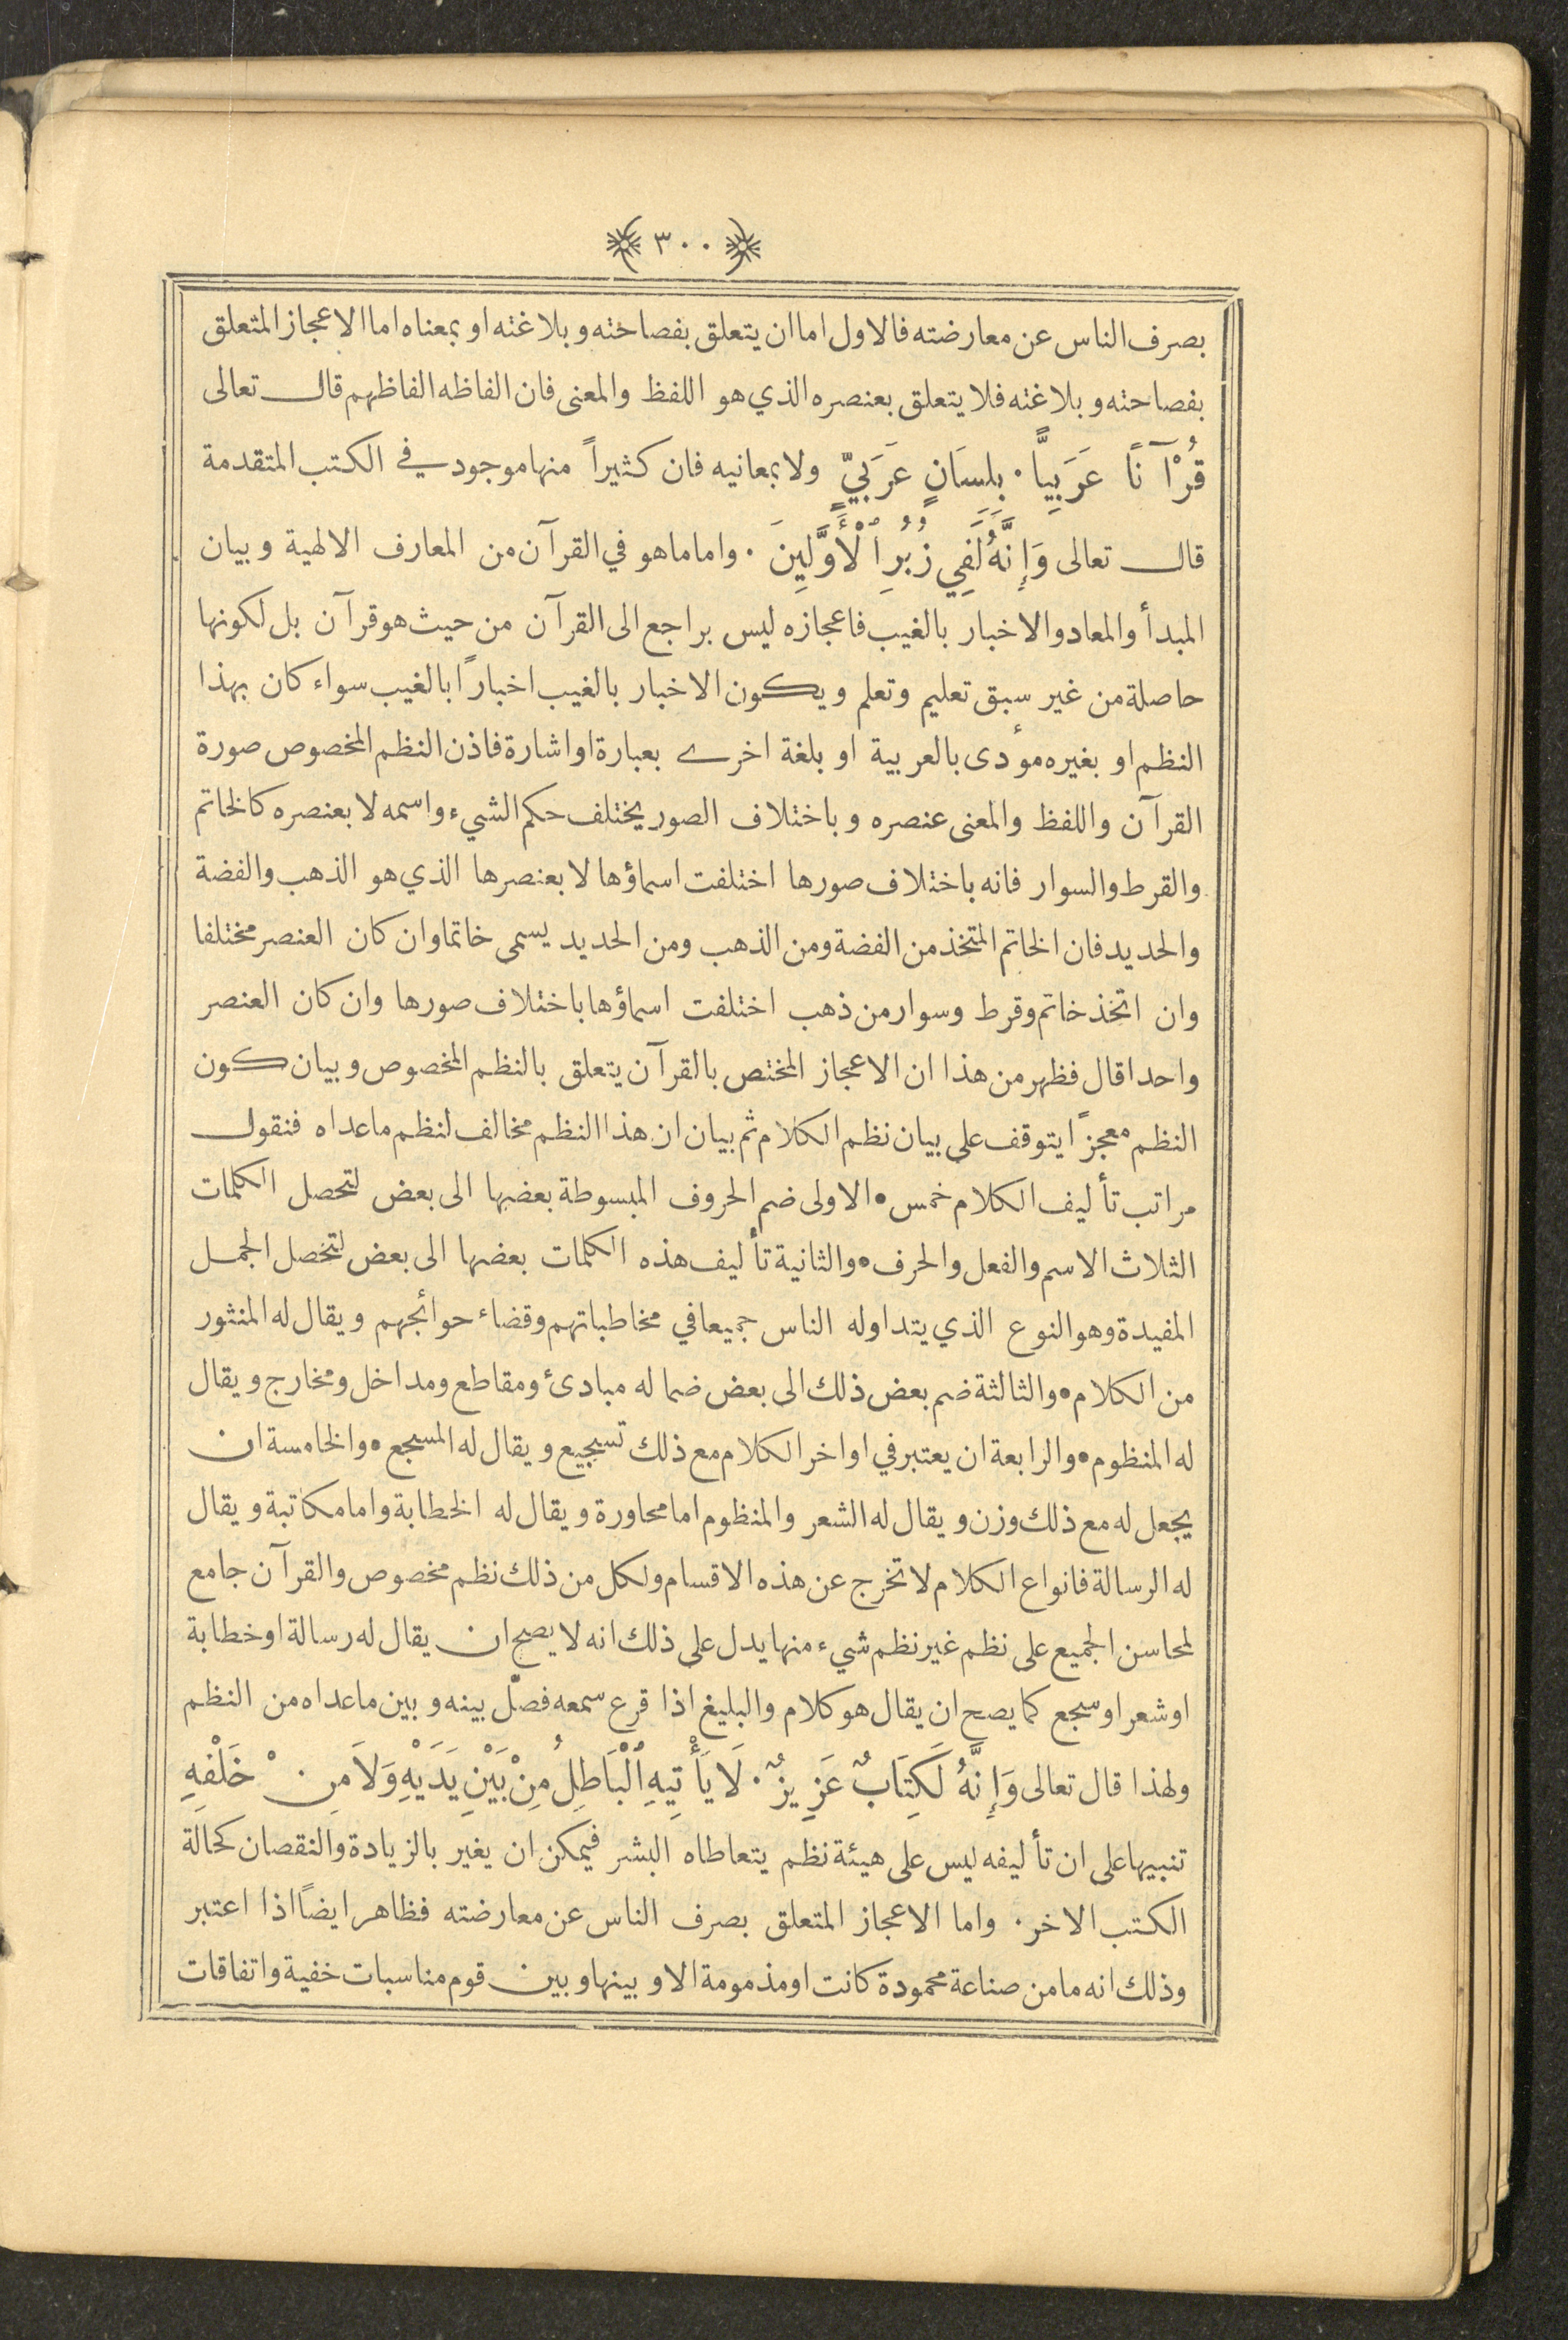 ٣٠٠
بصرف الناس عن معارضته فالاول اما ان يتعلق بفصاحته وبلاغته او بمعناه اما الاعجاز المتعلق
بفصاحته وبلاغته فلا يتعلق بعنصره الذي هو اللفظ والمعنى فان الفاظه الفاظهم قال تعالى
قُرْآنًا عَرَبِيًّا . بِلِسَانٍ عَرَبِيٍّ ولا بمعانيه فان كثيراً منها موجود في الكتب المتقدمة
قال تعالى وَإِنَّهُ لَفِي زُبُرِ ٱلْأَوَّلِينَ . واما ما هو في القرآن من المعارف الالهية وبيان
المبدأ والمعاد والاخبار بالغيب فاعجازه ليس براجع الى القرآن من حيث هو قرآن بل لكونها
حاصلة من غير سبق تعليم وتعلم ويكون الاخبار بالغيب اخباراً بالغيب سواء كان بهذا
النظم او بغيره مؤدى بالعربية او بلغة اخرى بعبارة او اشارة فاذن النظم المخصوص صورة
القرآن واللفظ والمعنى عنصره وباختلاف الصور يختلف حكم الشيء واسمه لا بعنصره كالخاتم
والقرط والسوار فانه باختلاف صورها اختلفت اسماؤها لا بعنصرها الذي هو الذهب والفضة
والحديد فان الخاتم المتخذ من الفضة ومن الذهب ومن الحديد يسمى خاتما وان كان العنصر مختلفا
وان اتخذ خاتم وقرط وسوار من ذهب اختلفت اسماؤها باختلاف صورها وان كان العنصر
واحدا قال فظهر من هذا ان الاعجاز المختص بالقرآن يتعلق بالنظم المخصوص وبيان كون
النظم معجزاً يتوقف على بيان نظم الكلام ثم بيان ان هذا النظم مخالف لنظم ما عداه فنقول
مراتب تأليف الكلام خمس • الاولى ضم الحروف المبسوطة بعضها الى بعض لتحصل الكلمات
الثلاث الاسم والفعل والحرف • والثانية تأليف هذه الكلمات بعضها الى بعض لتحصل الجمل
المفيدة وهو النوع الذي يتداوله الناس جميعا في مخاطباتهم وقضاء حوائجهم ويقال له المنثور
من الكلام • والثالثة ضم بعض ذلك الى بعض ضما له مبادئ ومقاطع ومداخل ومخارج ويقال
له المنظوم • والرابعة ان يعتبر في اواخر الكلام مع ذلك تسجيع ويقال له المسجع • والخامسة ان
يجعل له مع ذلك وزن ويقال له الشعر والمنظوم اما محاورة ويقال له الخطابة واما مكاتبة ويقال
له الرسالة فانواع الكلام لا تخرج عن هذه الاقسام ولكل من ذلك نظم مخصوص والقرآن جامع
لمحاسن الجميع على نظم غير نظم شيء منها يدل على ذلك انه لا يصح ان يقال له رسالة او خطابة
او شعر او سجع كما يصح ان يقال هو كلام والبليغ اذا قرع سمعه فصّل بينه وبين ما عداه من النظم
ولهذا قال تعالى وَإِنَّهُ لَكِتَابٌ عَزِيزٌ . لَا يَأْتِيهِ ٱلْبَاطِلُ مِنْ بَيْنِ يَدَيْهِ وَلَا مِنْ خَلْفِهِ
تنبيها على ان تأليفه ليس على هيئة نظم يتعاطاه البشر فيمكن ان يغير بالزيادة والنقصان كحالة
الكتب الاخر . واما الاعجاز المتعلق بصرف الناس عن معارضته فظاهر ايضاً اذا اعتبر
وذلك انه ما من صناعة محمودة كانت او مذمومة الا وبينها وبين قوم مناسبات خفية واتفاقات